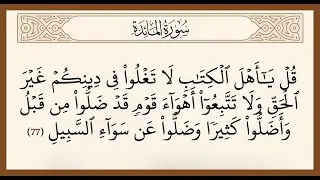 سُورَةُ المَائِدَة
قُلْ يَـٰٓأَهْلَ ٱلْكِتَـٰبِ لَا تَغْلُوا۟ فِى دِينِكُمْ غَيْرَ
ٱلْحَقِّ وَلَا تَتَّبِعُوٓا۟ أَهْوَآءَ قَوْمٍۢ قَدْ ضَلُّوا۟ مِن قَبْلُ
وَأَضَلُّوا۟ كَثِيرًۭا وَضَلُّوا۟ عَن سَوَآءِ ٱلسَّبِيلِ (77)